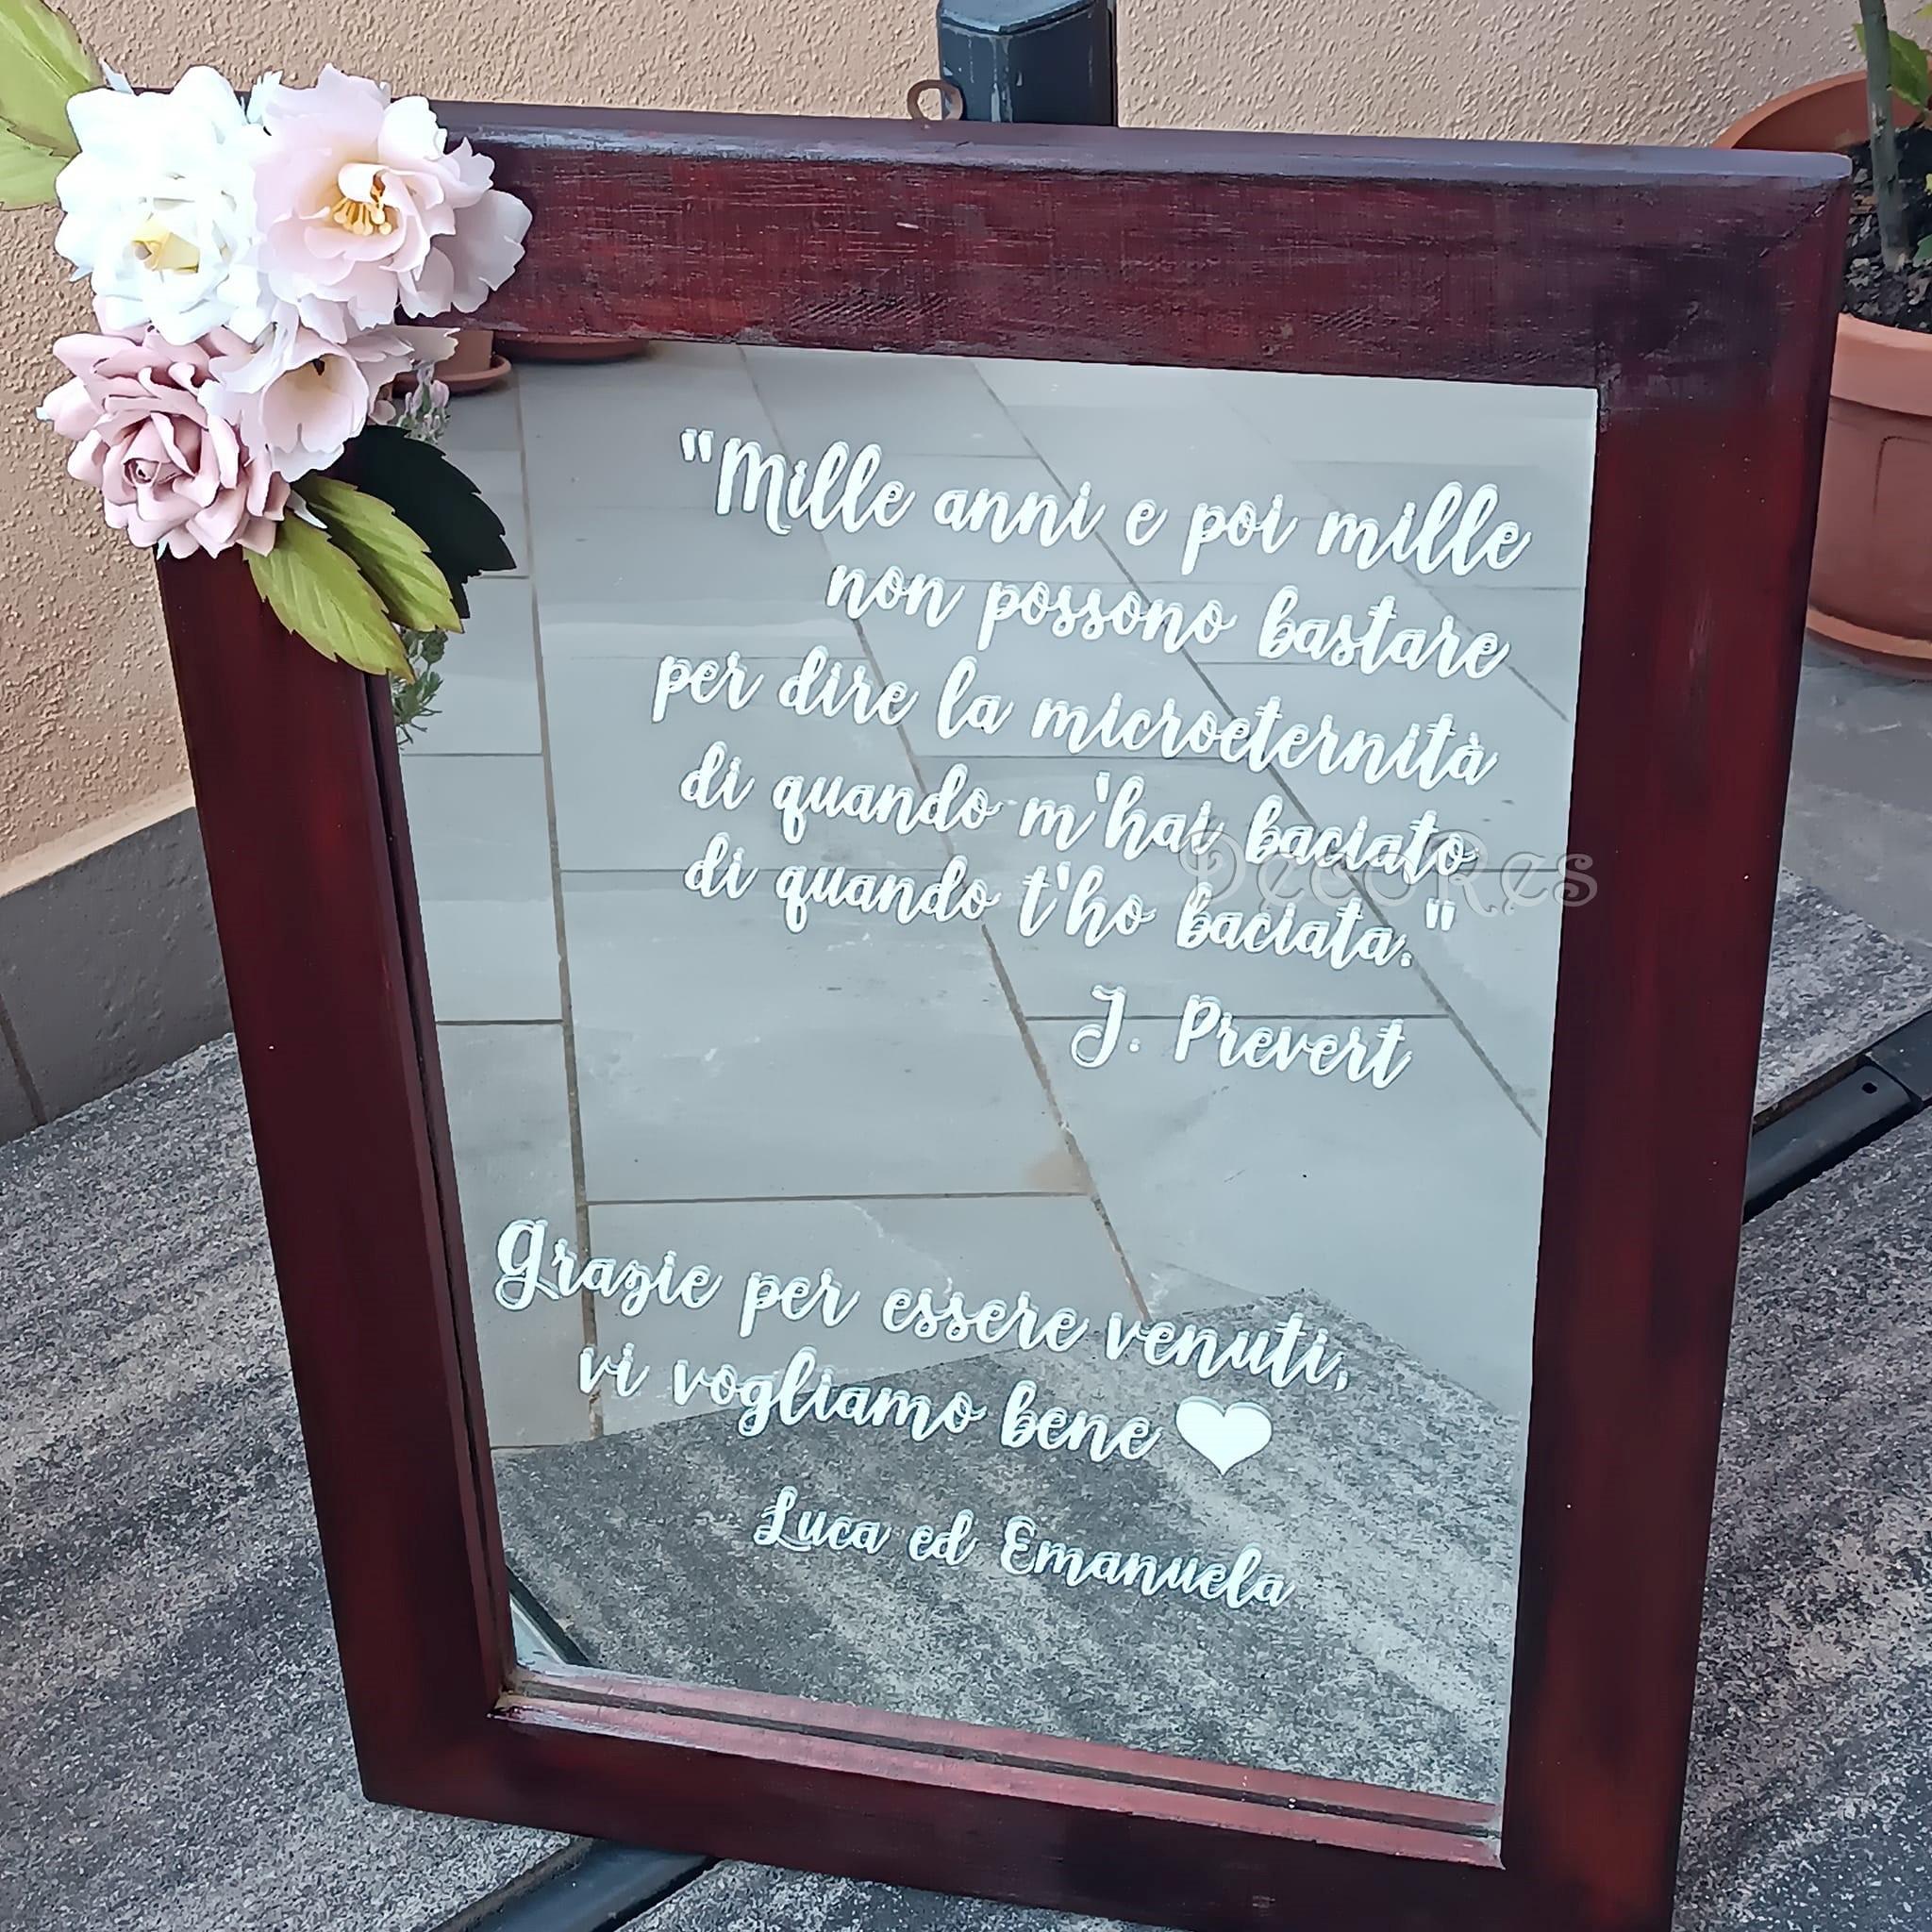 "Mille anni e poi mille
non possono bastare
per dire la microeternità
di quando m'hai baciato
di quando t'ho baciata."
J. Prevert
Grazie per essere venuti,
vi vogliamo bene
Luca ed Emanuela